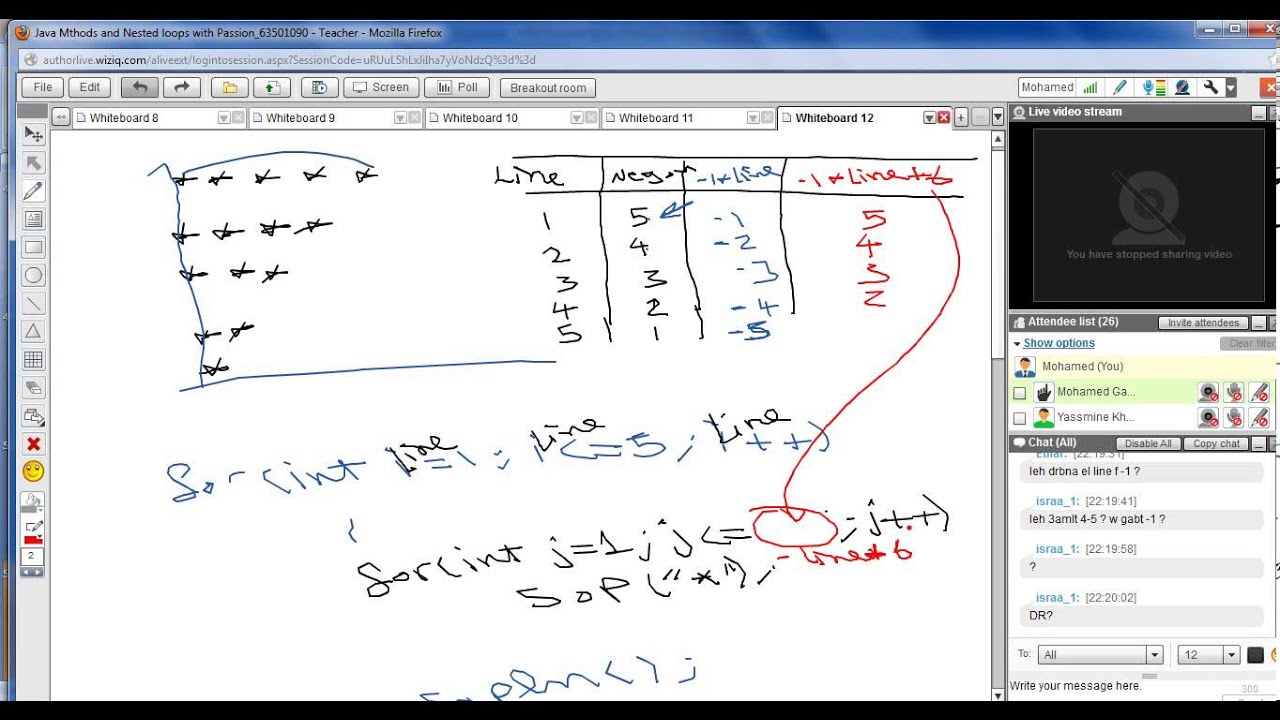 Java Mthods and Nested loops with Passion_63501090 - Teacher - Mozilla Firefox
authorlive.wiziq.com/aliveext/logintosession.aspx?SessionCode=uRUuLShLxJiIha7yVoNdzQ%3d%3d
File Edit Screen Poll Breakout room Mohamed
Whiteboard 8 Whiteboard 9 Whiteboard 10 Whiteboard 11 Whiteboard 12
Live video stream
You have stopped sharing video
Line -1*Line -1*Line+6
1 5 -1 5
2 4 -2 4
3 3 -3 3
4 2 -4 2
5 1 -5
for(int Line=1; Line<=5; Line++)
{
for(int j=1; j<= ; j++)
-Line+6
SOP("*");
Sopln();
2
Attendee list (26) Invite attendees
Show options Clear filter
Mohamed (You)
Mohamed Ga...
Yassmine Kh...
Chat (All) Disable All Copy chat
[22:19:31]
leh drbna el line f -1 ?
israa_1: [22:19:41]
leh 3amlt 4-5 ? w gabt -1 ?
israa_1: [22:19:58]
?
israa_1: [22:20:02]
DR?
To: All 12
Write your message here.
300